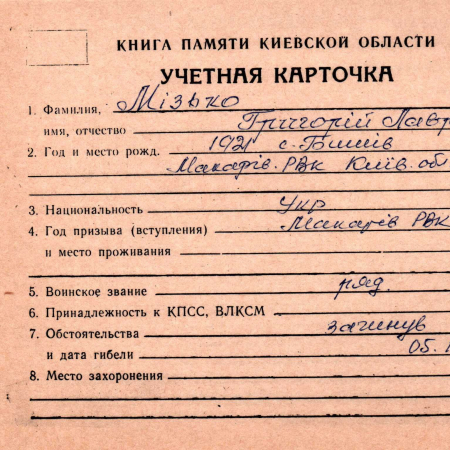 КНИГА ПАМЯТИ КИЕВСКОЙ ОБЛАСТИ
УЧЕТНАЯ КАРТОЧКА
1. Фамилия, Мізько
имя, отчество Григорій Лавр
2. Год и место рожд. 1921 с. Бишів
Макарів. РВК Київ. обл
3. Национальность Укр
4. Год призыва (вступления) Макарів РВК
и место проживания
5. Воинское звание ряд.
6. Принадлежность к КПСС, ВЛКСМ
7. Обстоятельства загинув
и дата гибели 05.
8. Место захоронения